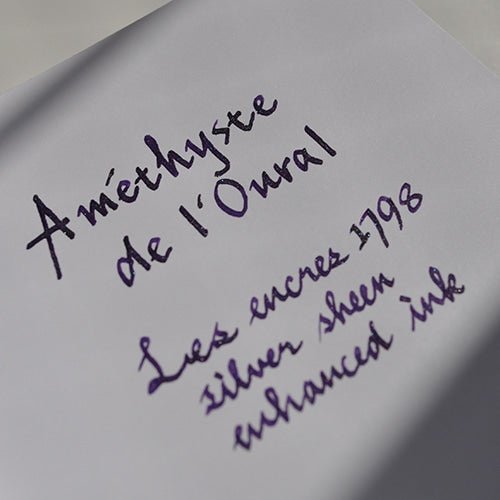 Améthyste
de l'Oural
Les encres 1798
silver sheen
enhanced ink